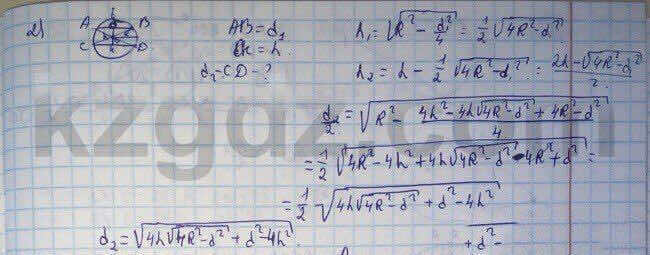 2) A B C D AB = d₁ h₁ = √(R² - d₁²/4) = 1/2 √(4R² - d₁²)
= h.
d₂ - CD - ? h₂ = h - 1/2 √(4R² - d₁²) = (2h - √(4R² - d²))/2
d₂/2 = √(R² - (4h² - 4h√(4R² - d²) + 4R² - d²)/4)
= 1/2 √(4R² - 4h² + 4h√(4R² - d²) - 4R² + d²) =
= 1/2 √(4h√(4R² - d²) + d² - 4h²)
d₂ = √(4h√(4R² - d²) + d² - 4h²). + d² -
kzgdz.com